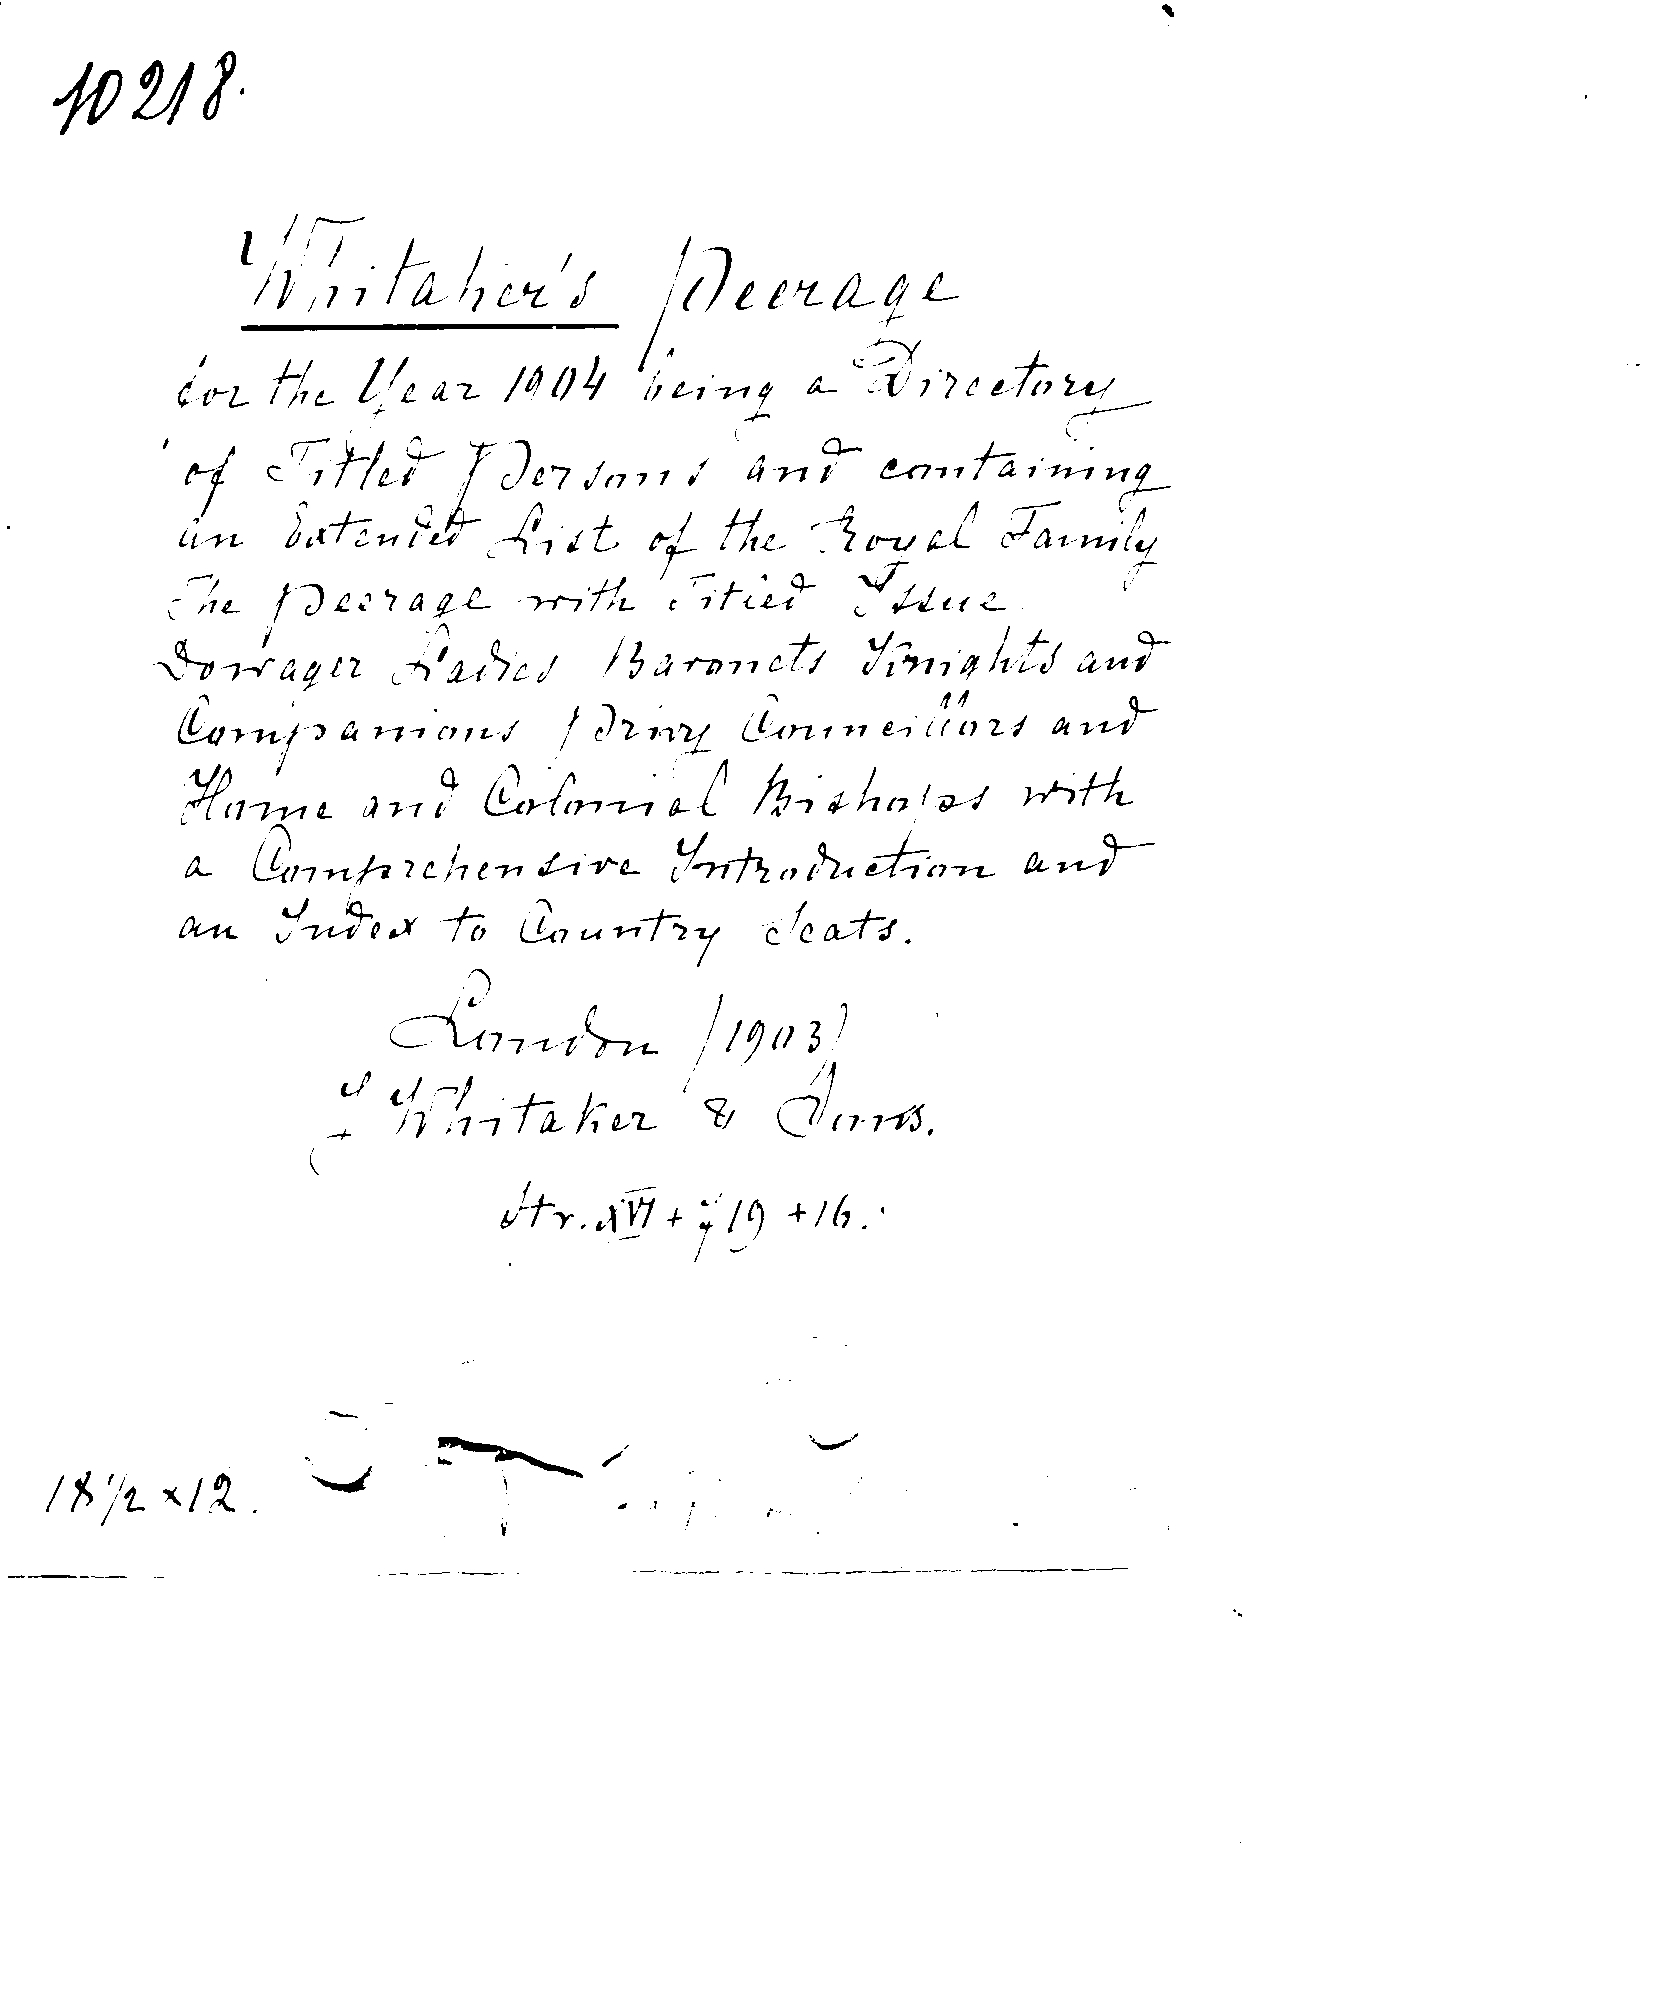 10218.
Whitaker's Peerage
for the Year 1904 being a Directory
of Titled Persons and containing
an Extended List of the Royal Family
The Peerage with Titled Issue
Dowager Ladies Baronets Knights and
Companions Privy Councillors and
Home and Colonial Bishops with
a Comprehensive Introduction and
an Index to Country Seats.
London /1903/
J Whitaker & Sons.
Str. XVI + 719 + 16.
18 1/2 x 12.